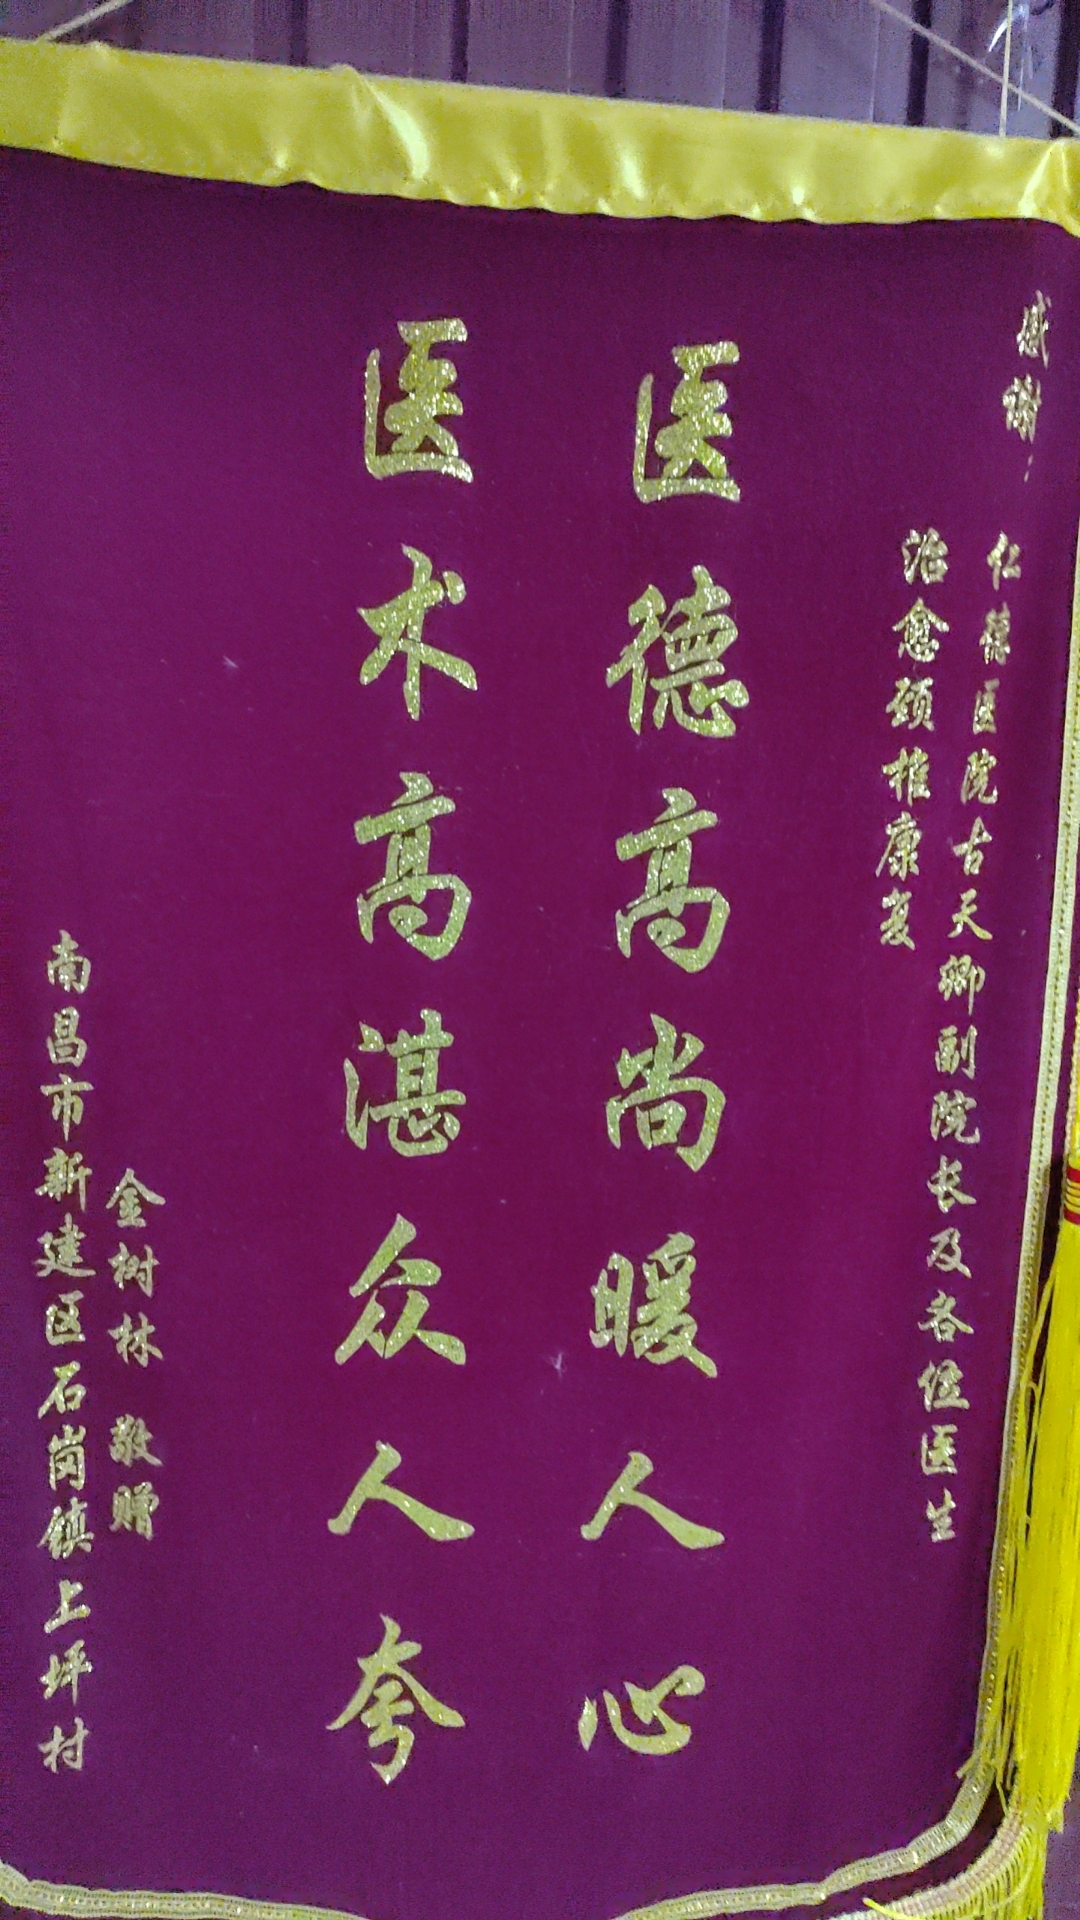 感谢：
仁德医院古天卿副院长及各位医生
治愈颈椎康复
医德高尚暖人心
医术高湛众人夸
金树林 敬赠
南昌市新建区石岗镇上坪村